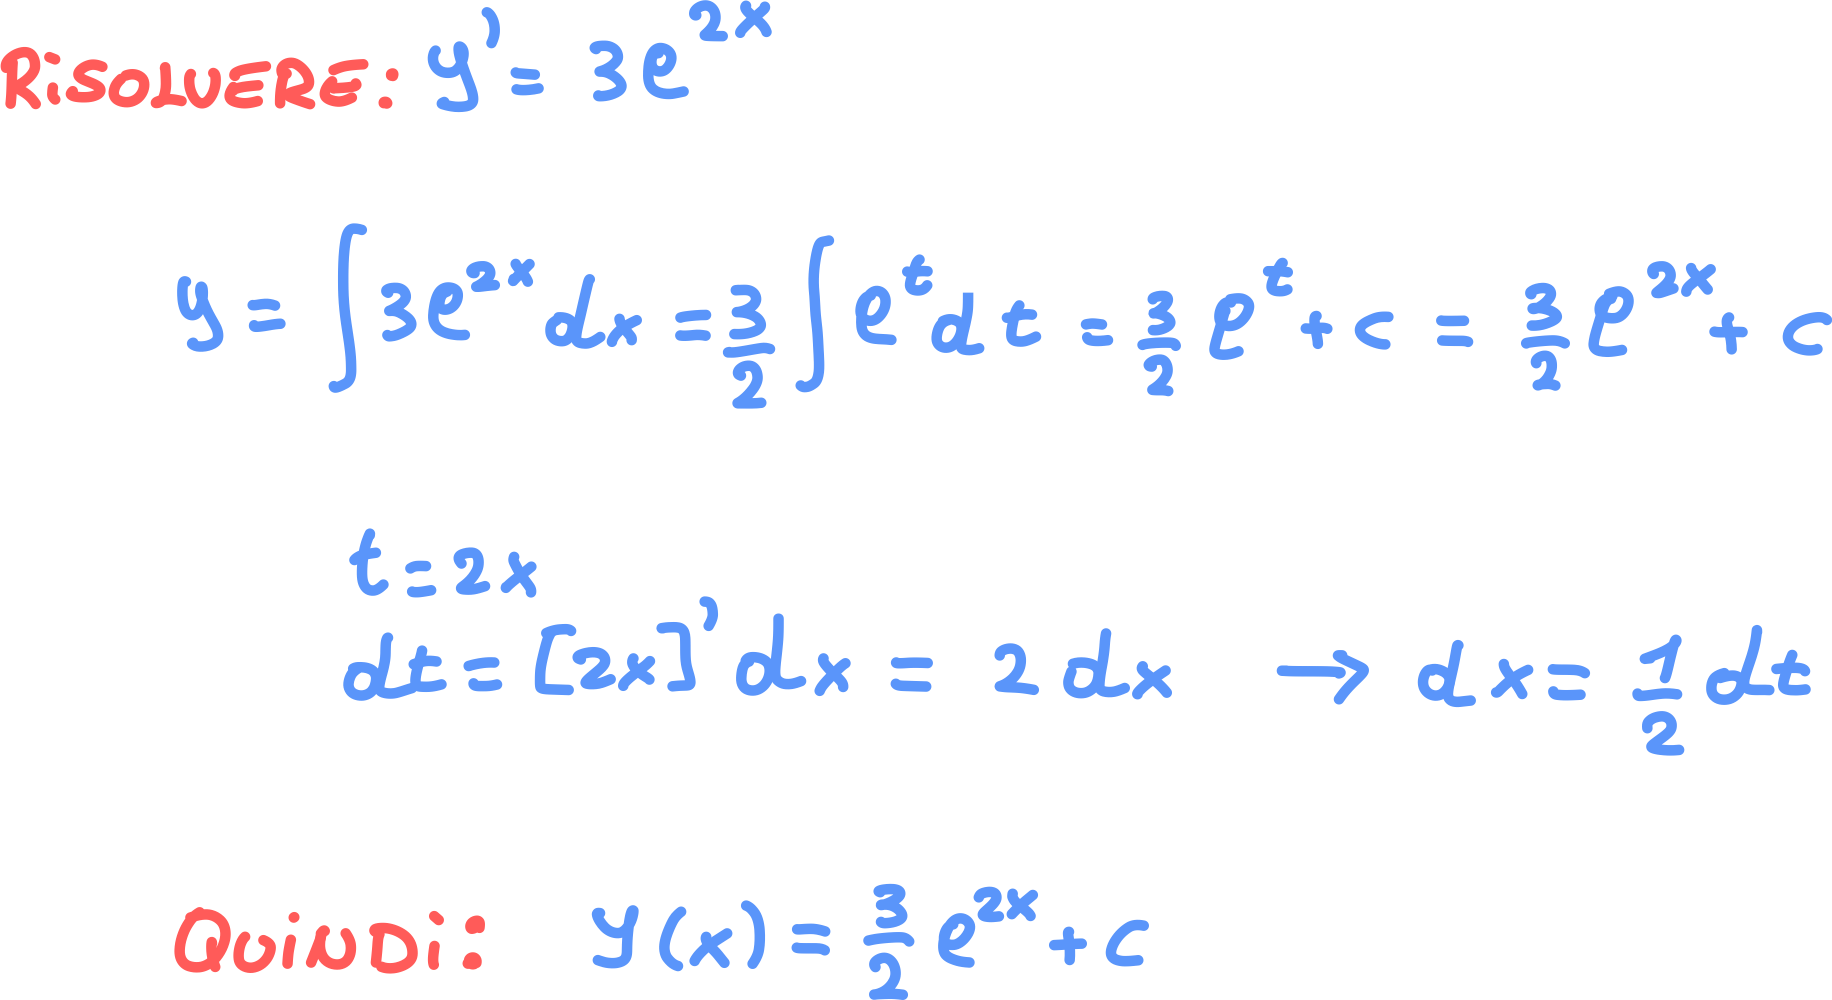 RiSOLVERE: y' = 3e^{2x}
y = ∫ 3e^{2x} dx = 3/2 ∫ e^t dt = 3/2 e^t + c = 3/2 e^{2x} + c
t = 2x
dt = [2x]' dx = 2 dx → dx = 1/2 dt
QUiNDi: y(x) = 3/2 e^{2x} + c